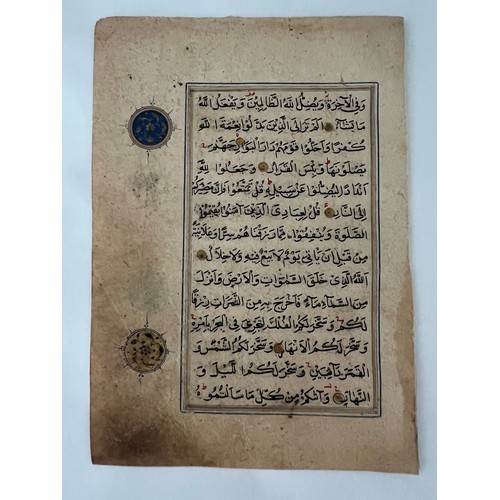 وَفِي الْآخِرَةِ وَيُضِلُّ اللَّهُ الظَّالِمِينَ وَيَفْعَلُ اللَّهُ
مَا يَشَاءُ أَلَمْ تَرَ إِلَى الَّذِينَ بَدَّلُوا نِعْمَةَ اللَّهِ
كُفْرًا وَأَحَلُّوا قَوْمَهُمْ دَارَ الْبَوَارِ جَهَنَّمَ
يَصْلَوْنَهَا وَبِئْسَ الْقَرَارُ وَجَعَلُوا لِلَّهِ
أَنْدَادًا لِيُضِلُّوا عَنْ سَبِيلِهِ قُلْ تَمَتَّعُوا فَإِنَّ مَصِيرَكُمْ
إِلَى النَّارِ قُلْ لِعِبَادِيَ الَّذِينَ آمَنُوا يُقِيمُوا
الصَّلَوةَ وَيُنْفِقُوا مِمَّا رَزَقْنَاهُمْ سِرًّا وَعَلَانِيَةً
مِنْ قَبْلِ أَنْ يَأْتِيَ يَوْمٌ لَا بَيْعٌ فِيهِ وَلَا خِلَالٌ
اللَّهُ الَّذِي خَلَقَ السَّمَوَاتِ وَالْأَرْضَ وَأَنْزَلَ
مِنَ السَّمَاءِ مَاءً فَأَخْرَجَ بِهِ مِنَ الثَّمَرَاتِ رِزْقًا
لَكُمْ وَسَخَّرَ لَكُمُ الْفُلْكَ لِتَجْرِيَ فِي الْبَحْرِ بِأَمْرِهِ
وَسَخَّرَ لَكُمُ الْأَنْهَارَ وَسَخَّرَ لَكُمُ الشَّمْسَ وَ
الْقَمَرَ دَائِبَيْنِ وَسَخَّرَ لَكُمُ اللَّيْلَ وَ
النَّهَارَ وَآتَاكُمْ مِنْ كُلِّ مَا سَأَلْتُمُوهُ